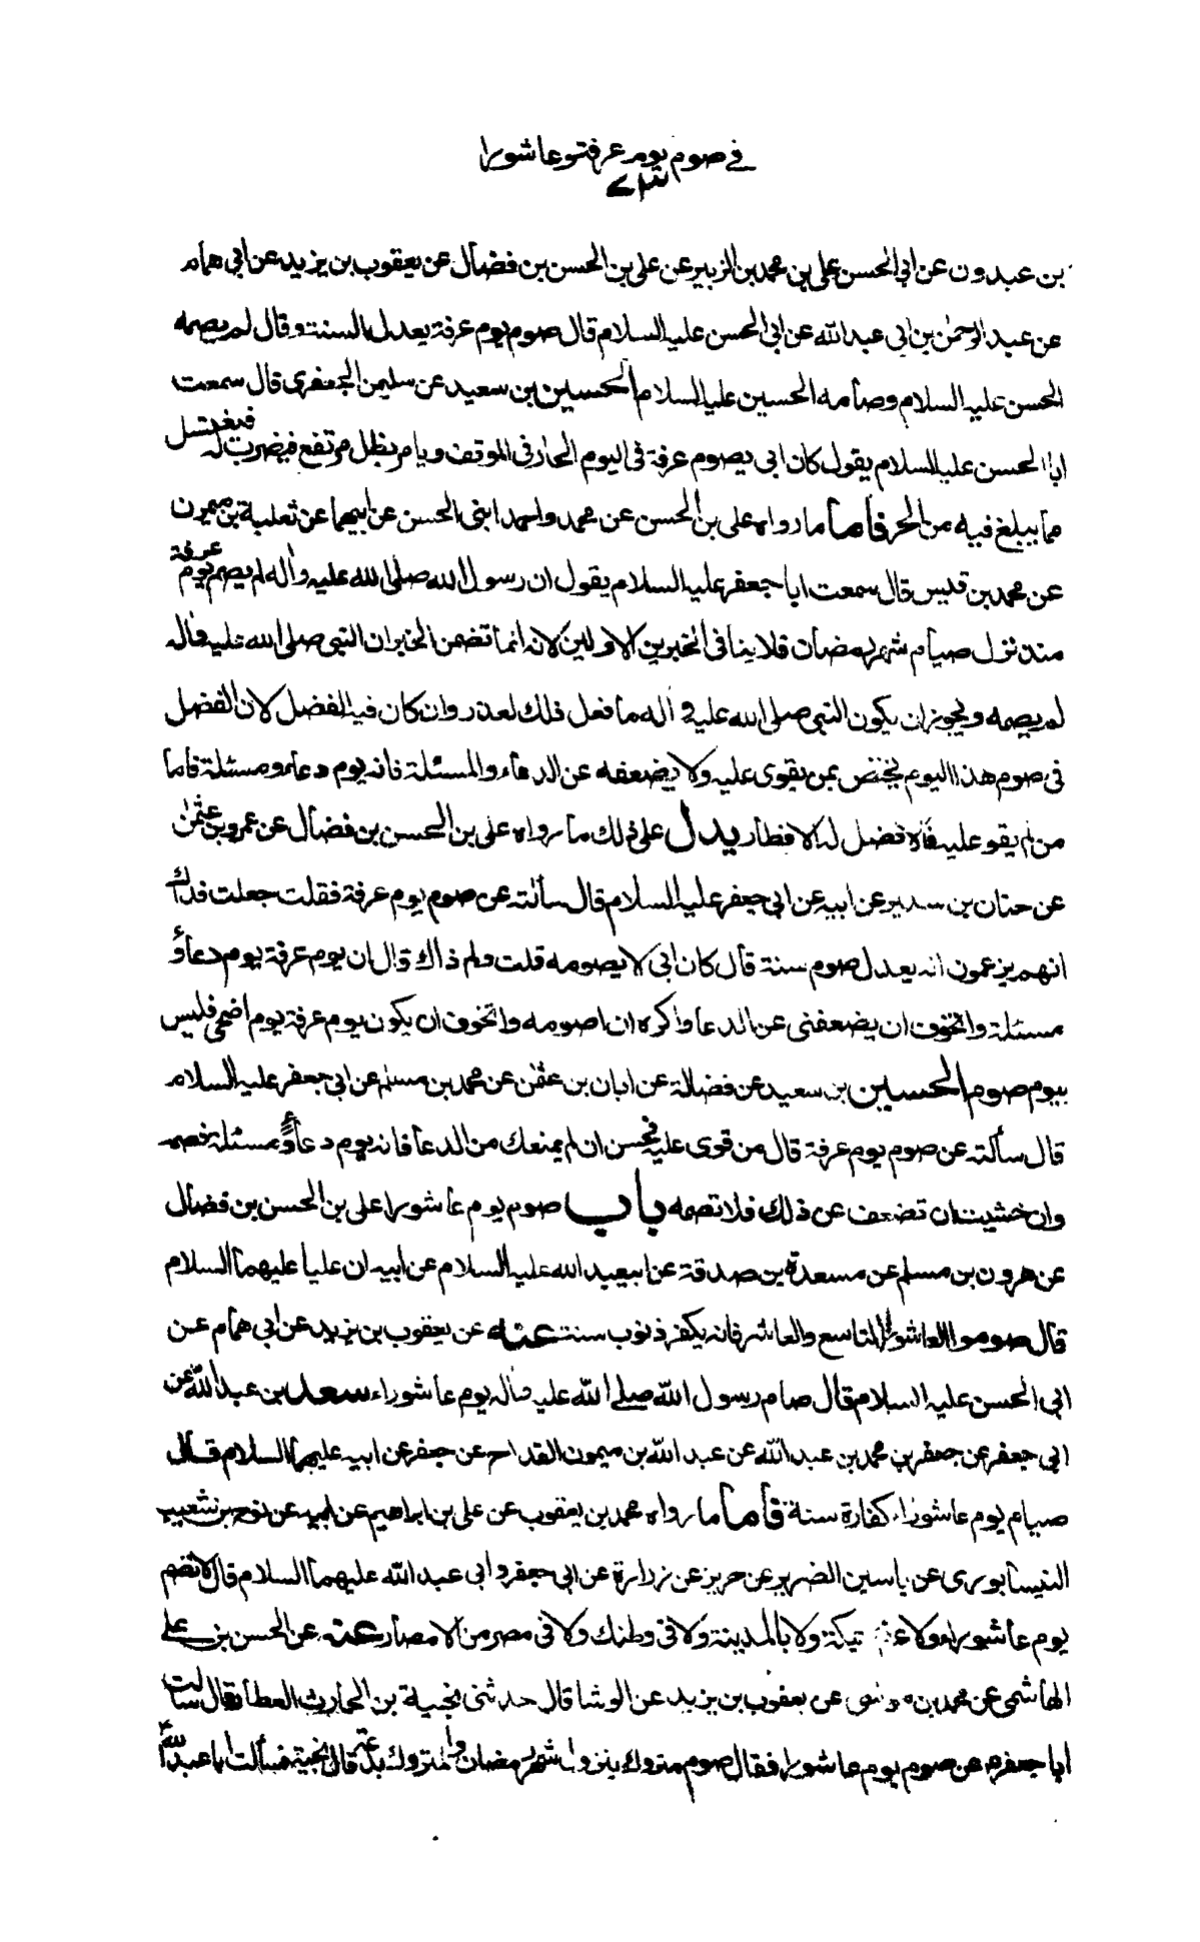 في صوم يوم عرفة وعاشورا
بن عبدون عن ابي الحسن علي بن محمد بن الزبير عن علي بن الحسن بن فضال عن يعقوب بن يزيد عن ابي همام
عن عبد الرحمن بن ابي عبد الله عن ابي الحسن عليه السلام قال صوم يوم عرفة يعدل السنة وقال لم يصمه
الحسن عليه السلام وصامه الحسين عليه السلام الحسين بن سعيد عن سليمن الجعفري قال سمعت
ابا الحسن عليه السلام يقول كان ابي يصوم عرفة في اليوم الحار في الموقف ويامر بظل مرتفع فيضرب له فيغتسل
مما يبلغ فيه من الحر فاما ما رواه علي بن الحسن عن محمد واحمد ابني الحسن عن ابيهما عن ثعلبة بن ميمون
عن محمد بن قيس قال سمعت ابا جعفر عليه السلام يقول ان رسول الله صلى الله عليه واله لم يصم يوم عرفة
منذ نزل صيام شهر رمضان فلا ينافي الخبرين الاولين لانه انما تضمن الخبر ان النبي صلى الله عليه واله
لم يصمه ويجوز ان يكون النبي صلى الله عليه و اله ما فعل ذلك لعذر وان كان فيه الفضل لان الفضل
في صوم هذا اليوم يختص بمن يقوى عليه ولا يضعفه عن الدعاء والمسئلة فانه يوم دعاء ومسئلة فاما
من لم يقو عليه فالافضل له الافطار يدل على ذلك ما رواه علي بن الحسن بن فضال عن عمرو بن عثمن
عن حنان بن سدير عن ابيه عن ابي جعفر عليه السلام قال سألته عن صوم يوم عرفة فقلت جعلت فداك
انهم يزعمون انه يعدل صوم سنة قال كان ابي لا يصومه قلت ولم ذاك قال ان يوم عرفة يوم دعاء و
مسئلة واتخوف ان يضعفني عن الدعا واكره ان اصومه واتخوف ان يكون يوم عرفة يوم اضحى فليس
بيوم صوم الحسين بن سعيد عن فضالة عن ابان بن عثمن عن محمد بن مسلم عن ابي جعفر عليه السلام
قال سألته عن صوم يوم عرفة قال من قوى عليه فحسن ان لم يمنعك من الدعا فانه يوم دعاء و مسئلة فصمه
وان خشيت ان تضعف عن ذلك فلا تصمه باب صوم يوم عاشورا علي بن الحسن بن فضال
عن هرون بن مسلم عن مسعدة بن صدقة عن ابيعبد الله عليه السلام عن ابيه ان عليا عليهما السلام
قال صوموا العاشورا التاسع والعاشر فانه يكفر ذنوب سنة عنه عن يعقوب بن يزيد عن ابي همام عن
ابي الحسن عليه السلام قال صام رسول الله صلى الله عليه واله يوم عاشوراء سعد بن عبد الله عن
ابي جعفر عن جعفر بن محمد بن عبد الله عن عبد الله بن ميمون القداح عن جعفر عن ابيه عليهما السلام قال
صيام يوم عاشوراء كفارة سنة فاما ما رواه محمد بن يعقوب عن علي بن ابراهيم عن ابيه عن نوح بن شعيب
النيسابوري عن ياسين الضرير عن حريز عن زرارة عن ابي جعفر و ابي عبد الله عليهما السلام قال لا تصم
يوم عاشورا ولا بمكة ولا بالمدينة ولا في وطنك ولا في مصر من الامصار عنه عن الحسن بن علي
الهاشمي عن محمد بن موسى عن يعقوب بن يزيد عن الوشا قال حدثني نجبة بن الحارث العطار قال سألت
ابا جعفر ع عن صوم يوم عاشورا فقال صوم متروك بنزول شهر رمضان والمتروك بدعة قال نجبة فسألت ابا عبد الله